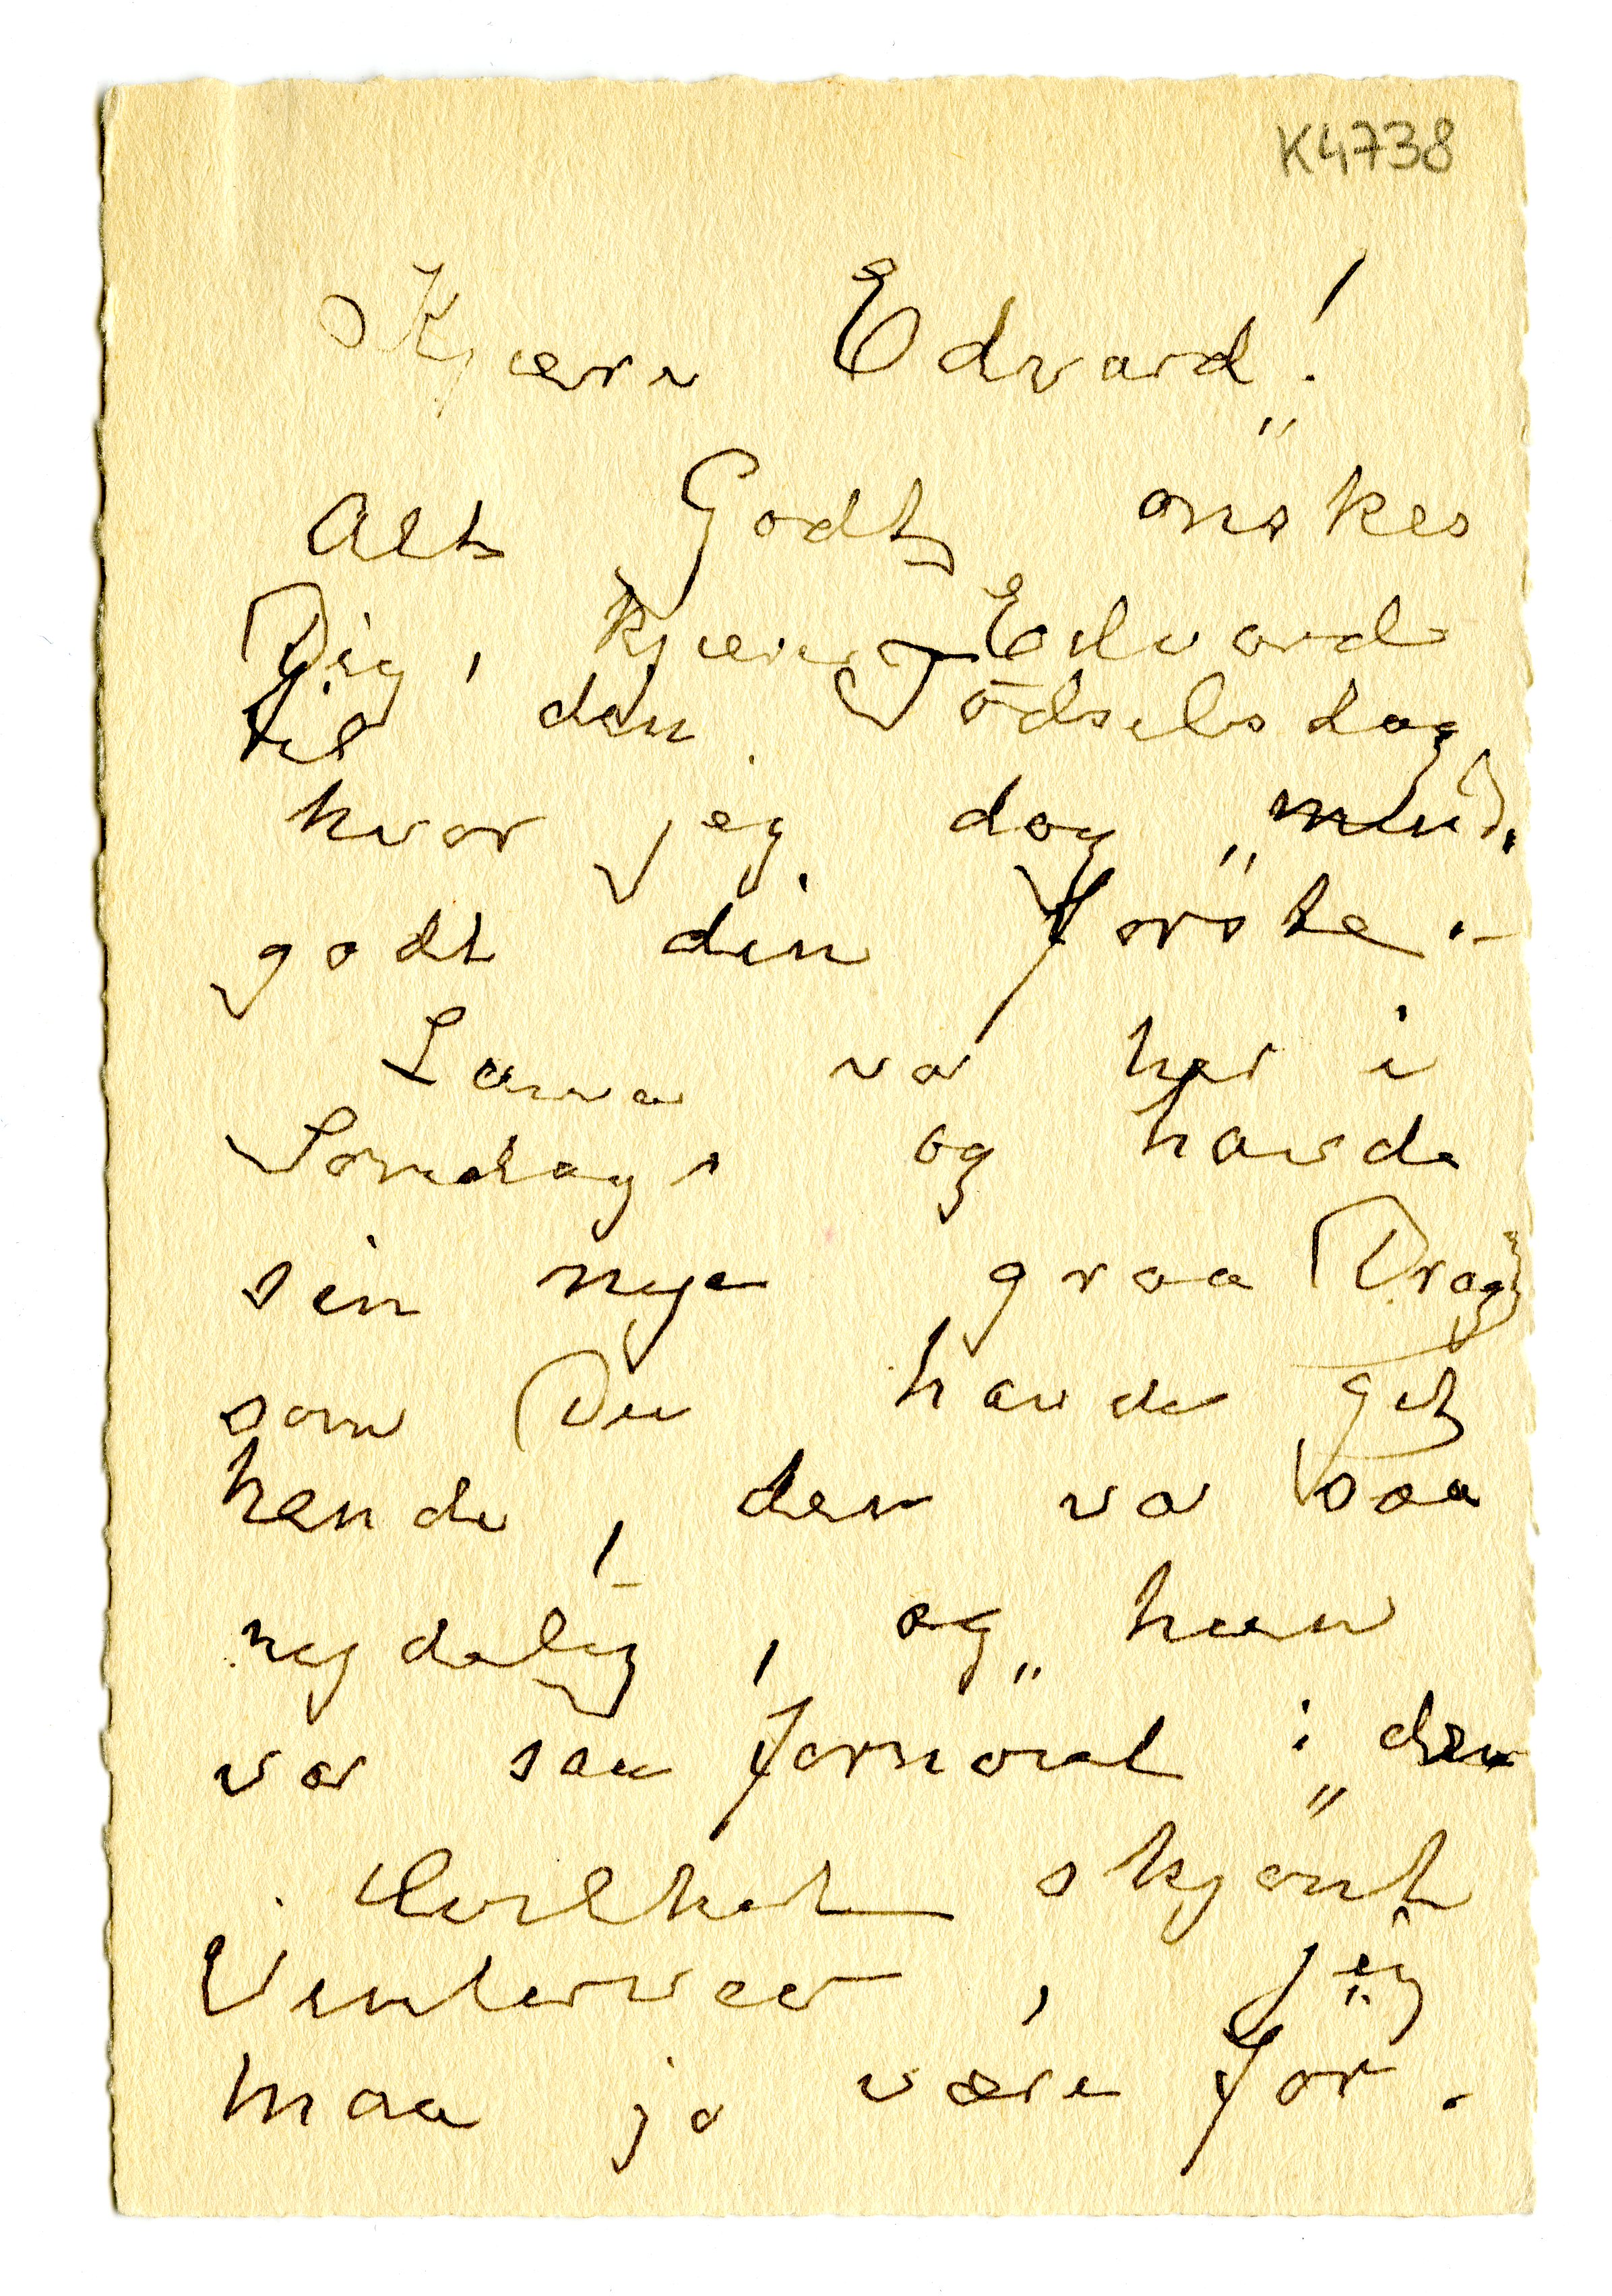 K4738
Kjære Edvard!
Alt Godt ønskes
Dig, kjære Edvard
til den Födselsdag
hvor jeg dog mind.
godt din første.–
Laura var her i
Søndags og havde
sin nye graa Dragt
som Du havde git
hende, den var saa
nydelig, og hun
var saa fornøiet i den
deilket skjønt
Vinterveer, jeg
maa jo være for.